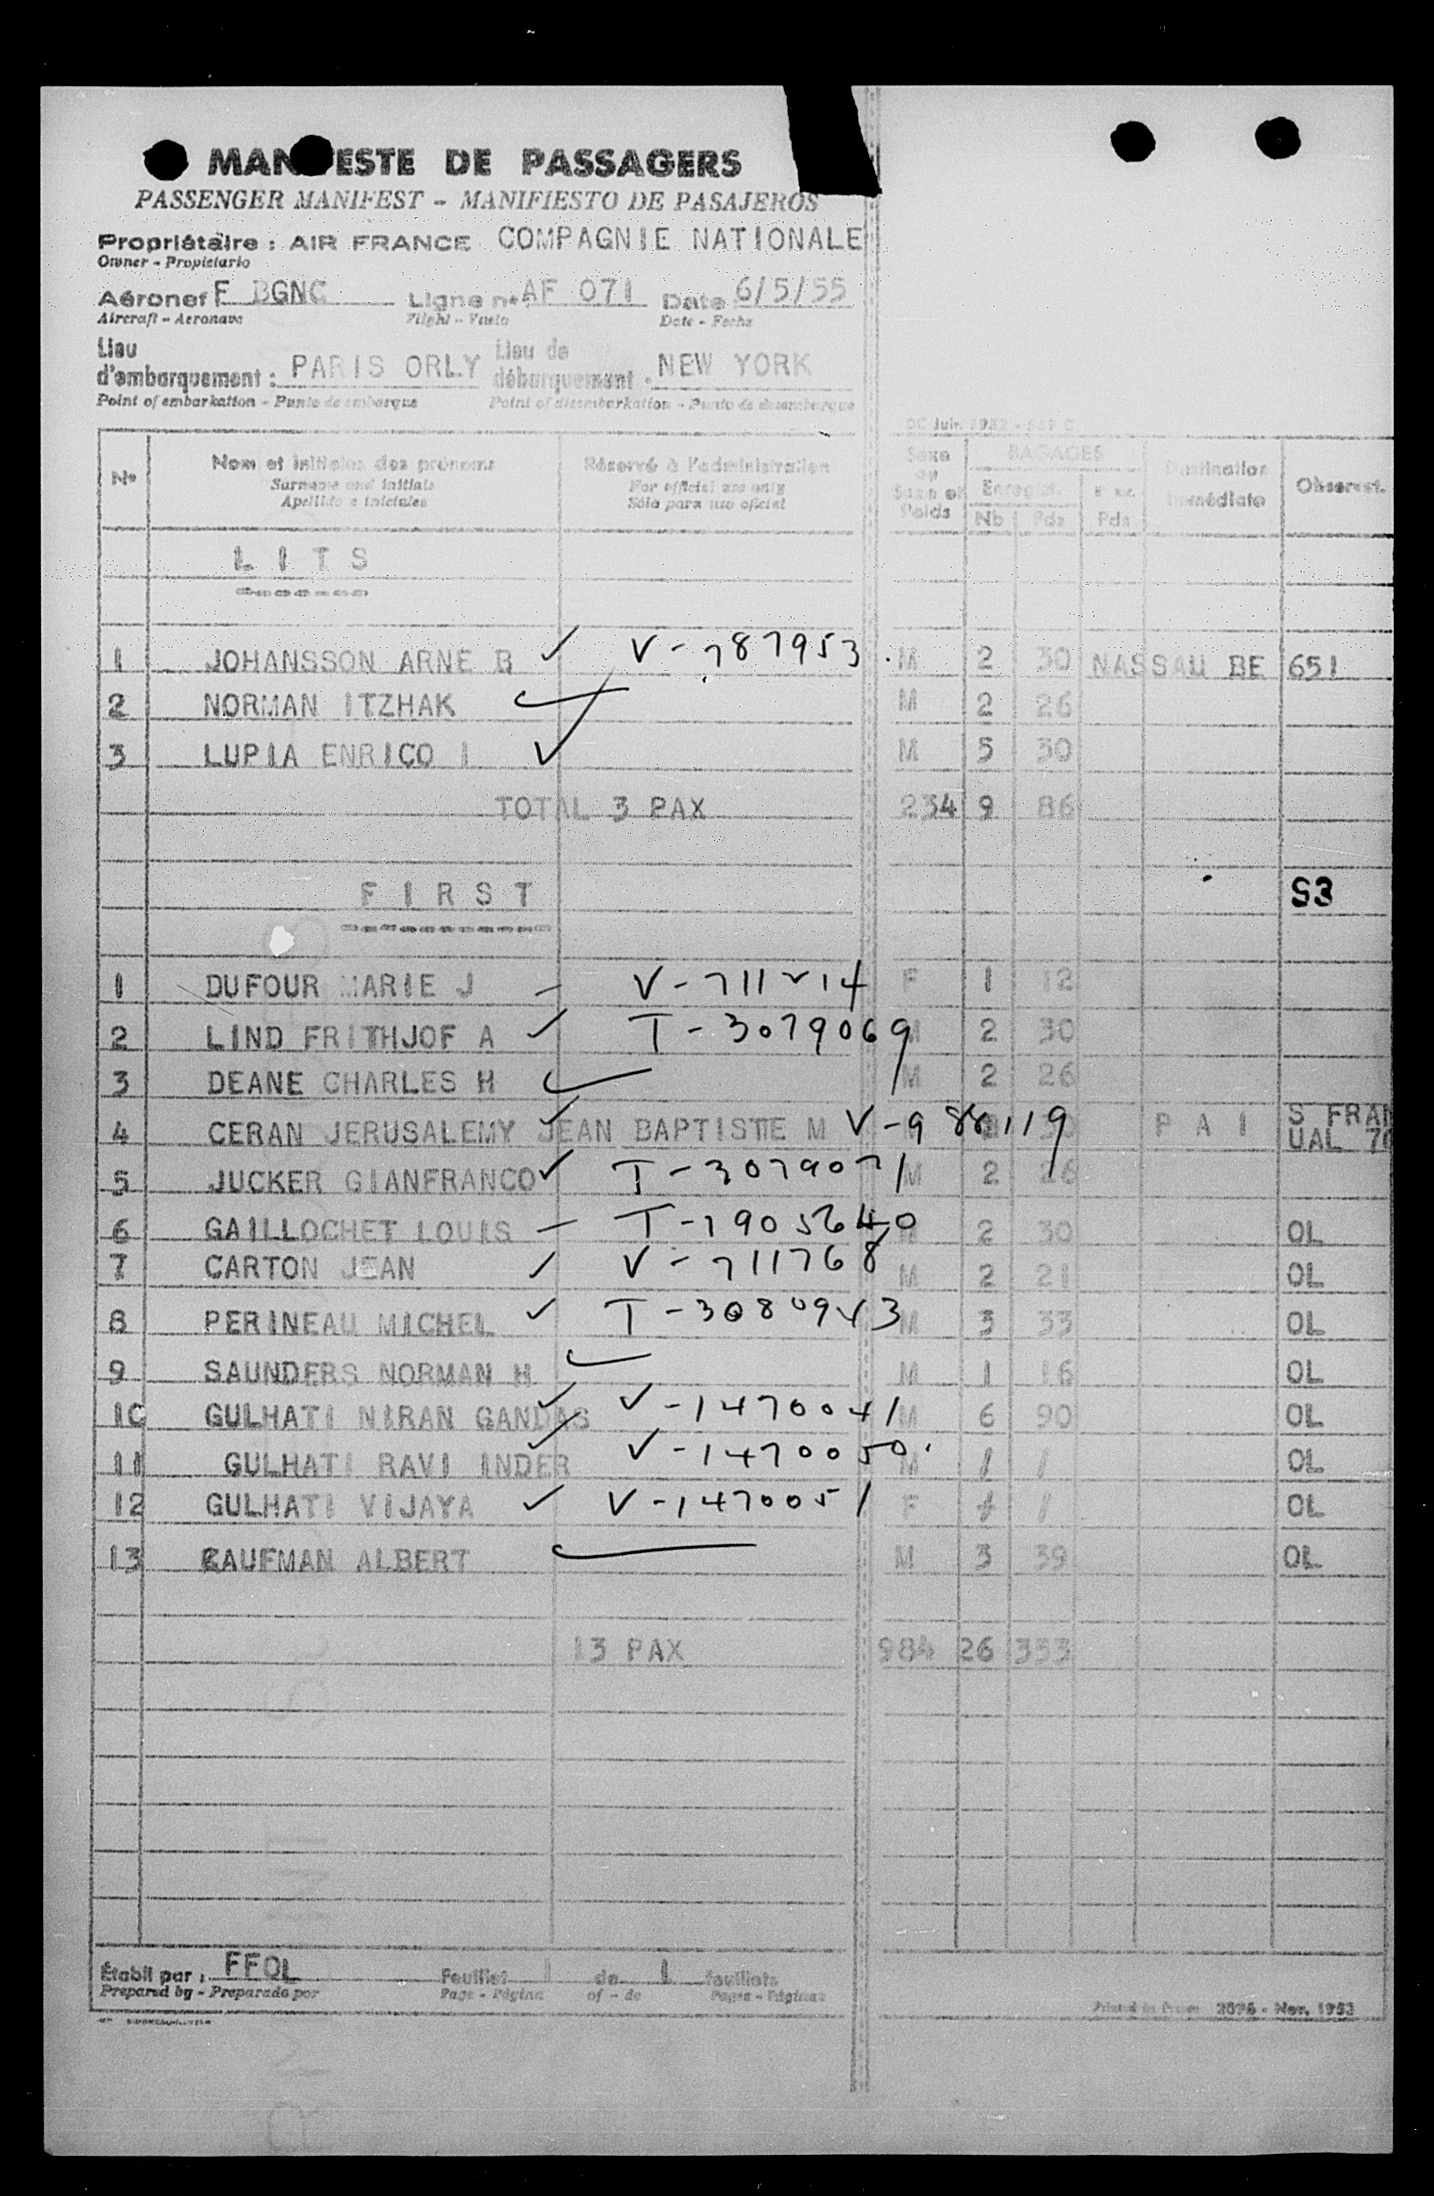 MANIFESTE DE PASSAGERS
PASSENGER MANIFEST - MANIFIESTO DE PASAJEROS
Propriétaire : AIR FRANCE COMPAGNIE NATIONALE
Owner - Propietario
Aéronef F BGNC Ligne n° AF 071 Date 6/5/55
Aircraft - Aeronave Flight - Vuelo Date - Fecha
Lieu d'embarquement : PARIS ORLY Lieu de débarquement : NEW YORK
Point of embarkation - Punto de embarque Point of disembarkation - Punto de desembarque
N° Nom et initiales des prénoms Réservé à l'administration Sexe ou Sexe et Poids BAGAGES Destination immédiate Observat.
Surname and initials For official use only Enregist. 
Apellido e iniciales Sólo para uso oficial Nb Pds Pds
LITS
1 JOHANSSON ARNE B V-787953 M 2 30 NASSAU BE 651
2 NORMAN ITZHAK M 2 26
3 LUPIA ENRICO I M 5 30
TOTAL 3 PAX 234 9 86
FIRST S3
1 DUFOUR MARIE J V-711214 F 1 12
2 LIND FRITHJOF A T-3079069 M 2 30
3 DEANE CHARLES H M 2 26
4 CERAN JERUSALEMY JEAN BAPTISTE M V-988119 P A I S FRAN
UAL
5 JUCKER GIANFRANCO T-3079071 M 2 26
6 GAILLOCHET LOUIS T-1905640 M 2 30 OL
7 CARTON JEAN V-711768 M 2 21 OL
8 PERINEAU MICHEL T-3080943 M 3 33 OL
9 SAUNDERS NORMAN H M 1 16 OL
10 GULHATI NIRAN GANDAS V-1470041 M 6 90 OL
11 GULHATI RAVI INDER V-1470050 M / / OL
12 GULHATI VIJAYA V-1470051 F / / OL
13 KAUFMAN ALBERT M 3 39 OL
13 PAX 984 26 353
Établi par : FFOL Feuillet 1 de 1 feuillets
Prepared by - Preparado por Page - Página of - de Pages - Páginas
Printed in France 2076 - Nov. 1953